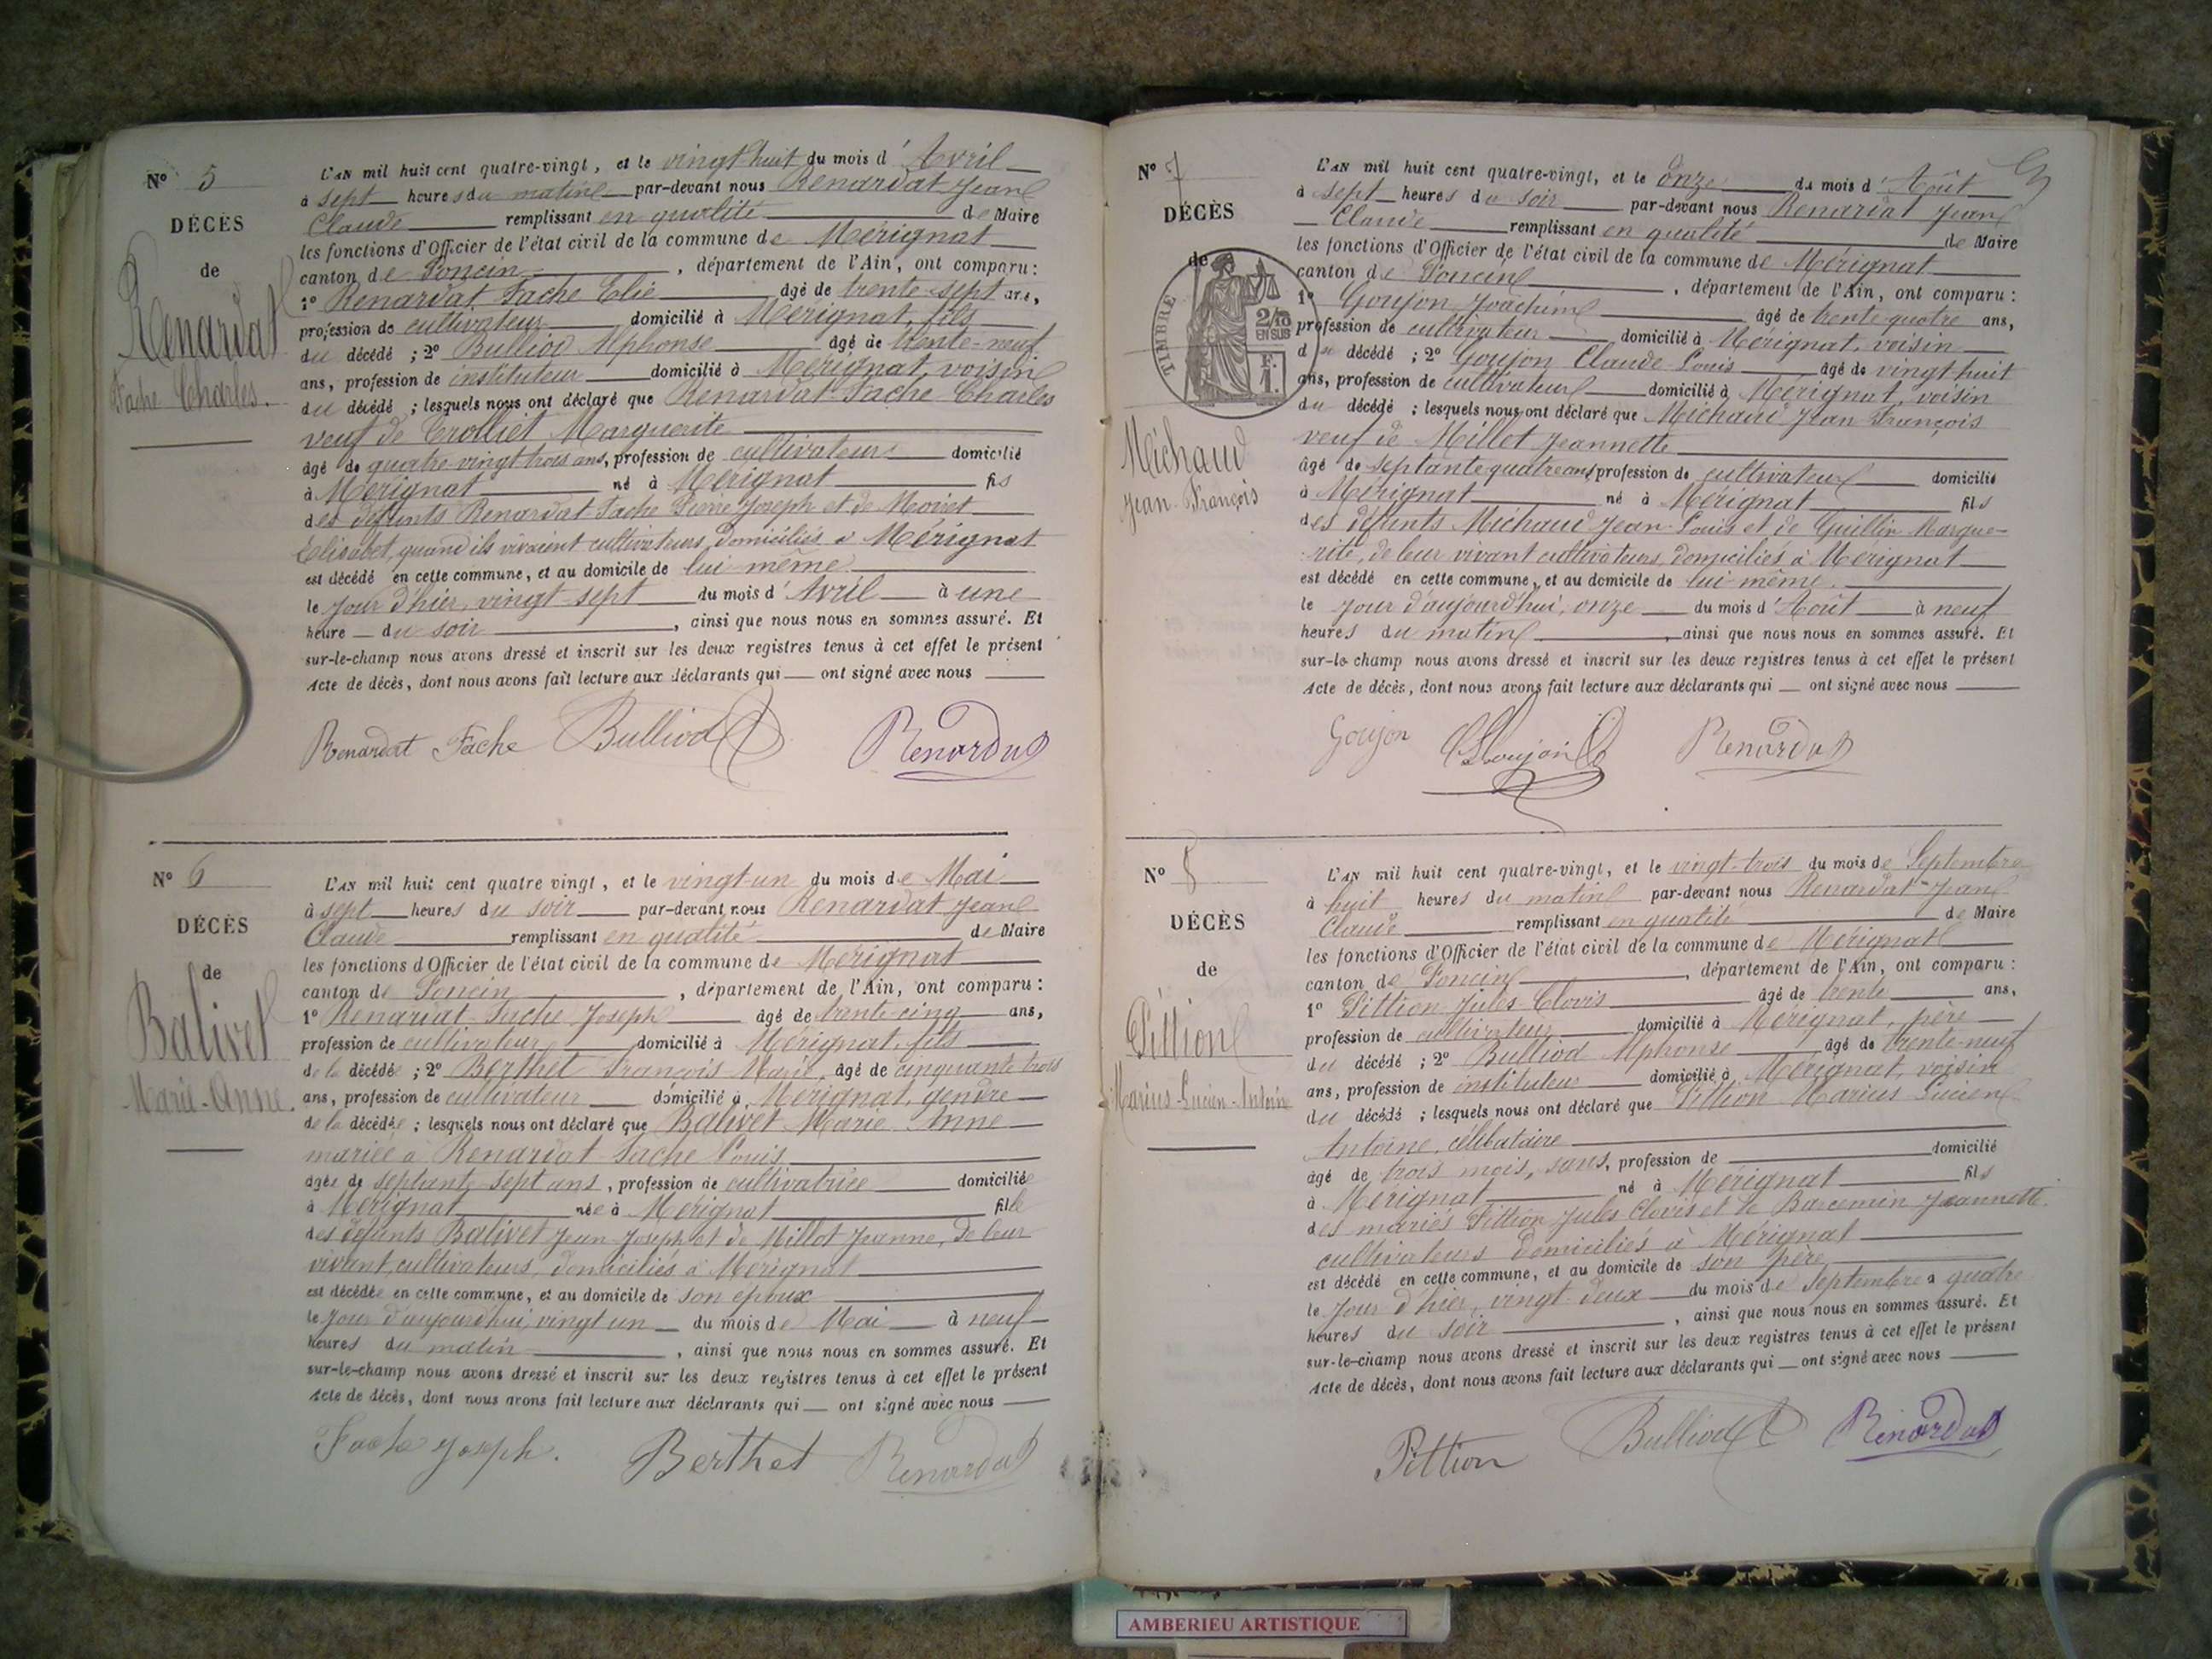 N° 5
DÉCÈS
de
Renardat
Fache Charles.
L'AN mil huit cent quatre-vingt, et le vingt-huit du mois d'Avril
à sept heures du matin par-devant nous Renardat Jean
Claude remplissant en qualité de Maire
les fonctions d'Officier de l'état civil de la commune de Mérignat
canton de Poncin, département de l'Ain, ont comparu:
1° Renardat Fache Elie âgé de trente-sept ans,
profession de cultivateur domicilié à Mérignat, fils
du décédé ; 2° Bulliod Alphonse âgé de trente-neuf
ans, profession de instituteur domicilié à Mérignat, voisin
du décédé ; lesquels nous ont déclaré que Renardat-Fache Charles
veuf de Trolliet Marguerite
âgé de quatre-vingt-trois ans, profession de cultivateur domicilié
à Mérignat né à Mérignat fils
des défunts Renardat-Fache Pierre Joseph et de Moiret
Elisabet, quand ils vivaient cultivateurs, domiciliés à Mérignat
est décédé en cette commune, et au domicile de lui même
le jour d'hier, vingt-sept du mois d'Avril à une
heure du soir, ainsi que nous nous en sommes assuré. Et
sur-le-champ nous avons dressé et inscrit sur les deux registres tenus à cet effet le présent
Acte de décès, dont nous avons fait lecture aux déclarants qui ont signé avec nous
Renardat Fache Bulliod Renardat
N° 6
DÉCÈS
de
Balivet
Marie-Anne.
L'AN mil huit cent quatre vingt, et le vingt-un du mois de Mai
à sept heures du soir par-devant nous Renardat Jean
Claude remplissant en qualité de Maire
les fonctions d'Officier de l'état civil de la commune de Mérignat
canton de Poncin, département de l'Ain, ont comparu:
1° Renardat-Fache Joseph âgé de trente-cinq ans,
profession de cultivateur domicilié à Mérignat, fils
de la décédée ; 2° Berthet François-Marie, âgé de cinquante trois
ans, profession de cultivateur domicilié à Mérignat, gendre
de la décédée ; lesquels nous ont déclaré que Balivet Marie-Anne
mariée à Renardat Fache Louis
âgée de septante-sept ans, profession de cultivatrice domiciliée
à Mérignat née à Mérignat fille
des défunts Balivet Jean-Joseph et de Millot Jeanne, de leur
vivant, cultivateurs, domiciliés à Mérignat
est décédée en cette commune, et au domicile de son époux
le jour d'aujourd'hui, vingt un du mois de Mai à neuf
heures du matin, ainsi que nous nous en sommes assuré. Et
sur-le-champ nous avons dressé et inscrit sur les deux registres tenus à cet effet le présent
Acte de décès, dont nous avons fait lecture aux déclarants qui ont signé avec nous
Fache Joseph. Berthet Renardat
N° 7
DÉCÈS
de
TIMBRE
2/10
EN SUS
F.
1.
Michaud
Jean-François
L'AN mil huit cent quatre-vingt, et le onze du mois d'Août
à sept heures du soir par-devant nous Renardat Jean
Claude remplissant en qualité de Maire
les fonctions d'Officier de l'état civil de la commune de Mérignat
canton de Poncin, département de l'Ain, ont comparu:
1° Goujon Joachim âgé de trente quatre ans,
profession de cultivateur domicilié à Mérignat, voisin
du décédé ; 2° Goujon Claude-Louis âgé de vingt huit
ans, profession de cultivateur domicilié à Mérignat, voisin
du décédé ; lesquels nous ont déclaré que Michaud Jean François
veuf de Millet Jeannette
âgé de septante quatre ans, profession de cultivateur domicilié
à Mérignat né à Mérignat fils
des défunts Michaud Jean-Louis et de Guillin Margue-
rite, de leur vivant cultivateurs, domiciliés à Mérignat
est décédé en cette commune, et au domicile de lui même.
le jour d'aujourd'hui, onze du mois d'Août à neuf
heures du matin, ainsi que nous nous en sommes assuré. Et
sur-le-champ nous avons dressé et inscrit sur les deux registres tenus à cet effet le présent
Acte de décès, dont nous avons fait lecture aux déclarants qui ont signé avec nous
Goujon CLGoujon Renardat
N° 8
DÉCÈS
de
Pittion
Marius-Lucien-Antoine
L'AN mil huit cent quatre-vingt, et le vingt-trois du mois de Septembre
à huit heures du matin par-devant nous Renardat Jean
Claude remplissant en qualité de Maire
les fonctions d'Officier de l'état civil de la commune de Mérignat
canton de Poncin, département de l'Ain, ont comparu:
1° Pittion Jules-Clovis âgé de trente ans,
profession de cultivateur domicilié à Mérignat, père
du décédé ; 2° Bulliod Alphonse âgé de trente-neuf
ans, profession de instituteur domicilié à Mérignat, voisin
du décédé ; lesquels nous ont déclaré que Pittion Marius Lucien
Antoine, célibataire
âgé de trois mois, sans, profession de domicilié
à Mérignat né à Mérignat fils
des mariés Pittion Jules Clovis et de Jeannette
cultivateurs domiciliés à Mérignat
est décédé en cette commune, et au domicile de son père
le jour d'hier, vingt deux du mois de Septembre à quatre
heures du soir, ainsi que nous nous en sommes assuré. Et
sur-le-champ nous avons dressé et inscrit sur les deux registres tenus à cet effet le présent
Acte de décès, dont nous avons fait lecture aux déclarants qui ont signé avec nous
Pittion Bulliod Renardat
AMBERIEU ARTISTIQUE